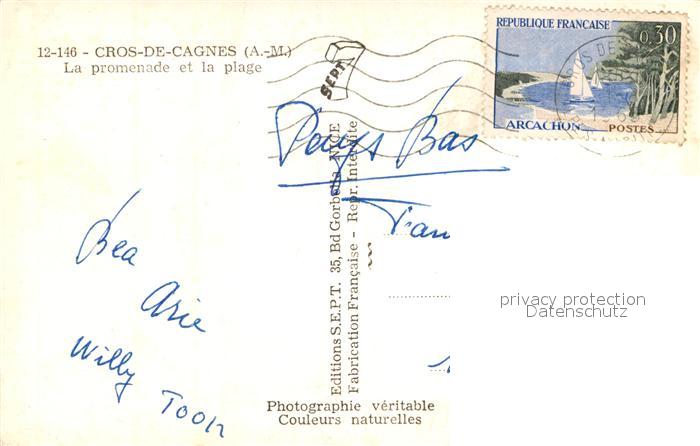 12-146 - CROS-DE-CAGNES (A.-M.)
La promenade et la plage
SEPT
REPUBLIQUE FRANÇAISE
0,30
ARCACHON
POSTES
CROS DE
Pays Bas
Fam
Editions S.E.P.T. 35, Bd Gorbella, NICE
Fabrication Française - Repr. Interdite
Bea
Arie
Willy
Toon
privacy protection
Datenschutz
Photographie véritable
Couleurs naturelles